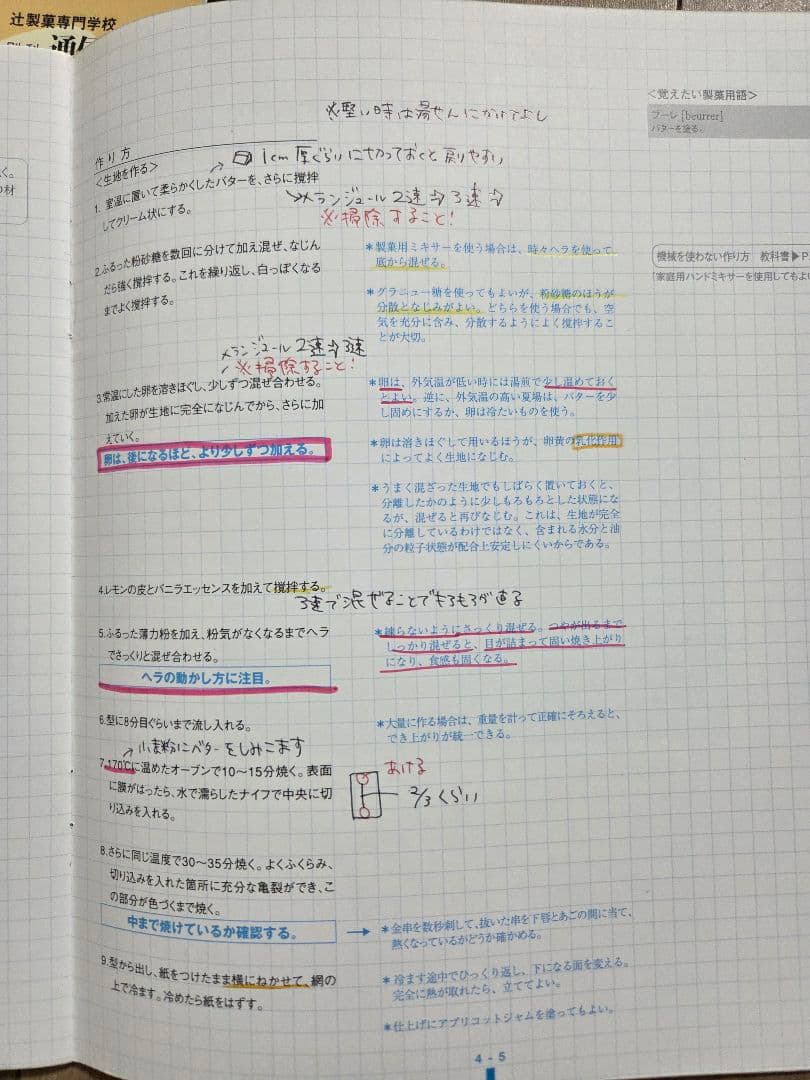 辻製菓専門学校
通
く。
の材
※堅い時は湯せんにかけてよし
＜覚えたい製菓用語＞
ブーレ [beurrer]
バターを塗る。
作り方
＜生地を作る＞
1cm厚ぐらいに切っておくと戻りやすい
1. 室温に置いて柔らかくしたバターを、さらに撹拌
してクリーム状にする。
メランジュール2速⇒3速⇒
※掃除すること!
2.ふるった粉砂糖を数回に分けて加え混ぜ、なじん
だら強く撹拌する。これを繰り返し、白っぽくなる
までよく撹拌する。
＊製菓用ミキサーを使う場合は、時々ヘラを使って
底から混ぜる。
＊グラニュー糖を使ってもよいが、粉砂糖のほうが
分散となじみがよい。どちらを使う場合でも、空
気を充分に含み、分散するようによく撹拌するこ
とが大切。
機械を使わない作り方 教科書▶P.
家庭用ハンドミキサーを使用してもよい
メランジュール2速⇒3速
※掃除すること!
3.常温にした卵を溶きほぐし、少しずつ混ぜ合わせる。
加えた卵が生地に完全になじんでから、さらに加
えていく。
卵は、後になるほど、より少しずつ加える。
＊卵は、外気温が低い時には湯煎で少し温めておく
とよい。逆に、外気温の高い夏場は、バターを少
し固めにするか、卵は冷たいものを使う。
＊卵は溶きほぐして用いるほうが、卵黄の乳化作用
によってよく生地になじむ。
＊うまく混ざった生地でもしばらく置いておくと、
分離したかのように少しもろもろとした状態にな
るが、混ぜると再びなじむ。これは、生地が完全
に分離しているわけではなく、含まれる水分と油
分の粒子状態が配合上安定しにくいからである。
4.レモンの皮とバニラエッセンスを加えて撹拌する。
3速で混ぜることでモロモロが直る
5.ふるった薄力粉を加え、粉気がなくなるまでヘラ
でさっくりと混ぜ合わせる。
ヘラの動かし方に注目。
＊練らないようにさっくり混ぜる。つやが出るまで
しっかり混ぜると、目が詰まって固い焼き上がり
になり、食感も固くなる。
6.型に8分目ぐらいまで流し入れる。
＊大量に作る場合は、重量を計って正確にそろえると、
でき上がりが統一できる。
小麦粉にバターをしみこます
7.170℃に温めたオーブンで10〜15分焼く。表面
に膜がはったら、水で濡らしたナイフで中央に切
り込みを入れる。
あける
2/3くらい
8.さらに同じ温度で30〜35分焼く。よくふくらみ、
切り込みを入れた箇所に充分な亀裂ができ、こ
の部分が色づくまで焼く。
中まで焼けているか確認する。
＊金串を数秒刺して、抜いた串を下唇とあごの間に当て、
熱くなっているかどうか確かめる。
9.型から出し、紙をつけたまま横にねかせて、網の
上で冷ます。冷めたら紙をはずす。
＊冷ます途中でひっくり返し、下になる面を変える。
完全に熱が取れたら、立ててよい。
＊仕上げにアプリコットジャムを塗ってもよい。
4 - 5